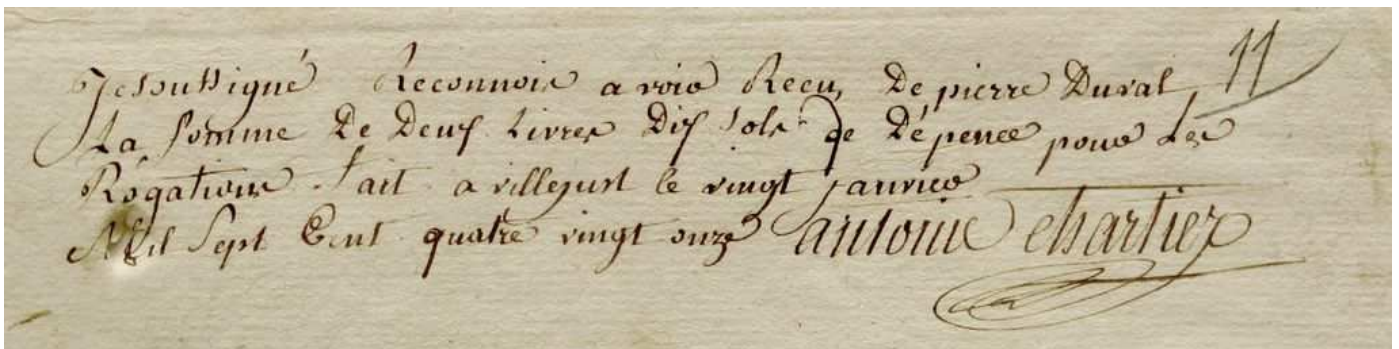 Je soussigné Reconnois a voir Recu De pierre Duval 11
La somme De Deux Livres Dix sols de Dépence pour Les
Rogations fait a villejust le vingt janvier
Mil sept Cent quatre vingt onze antoine chartier